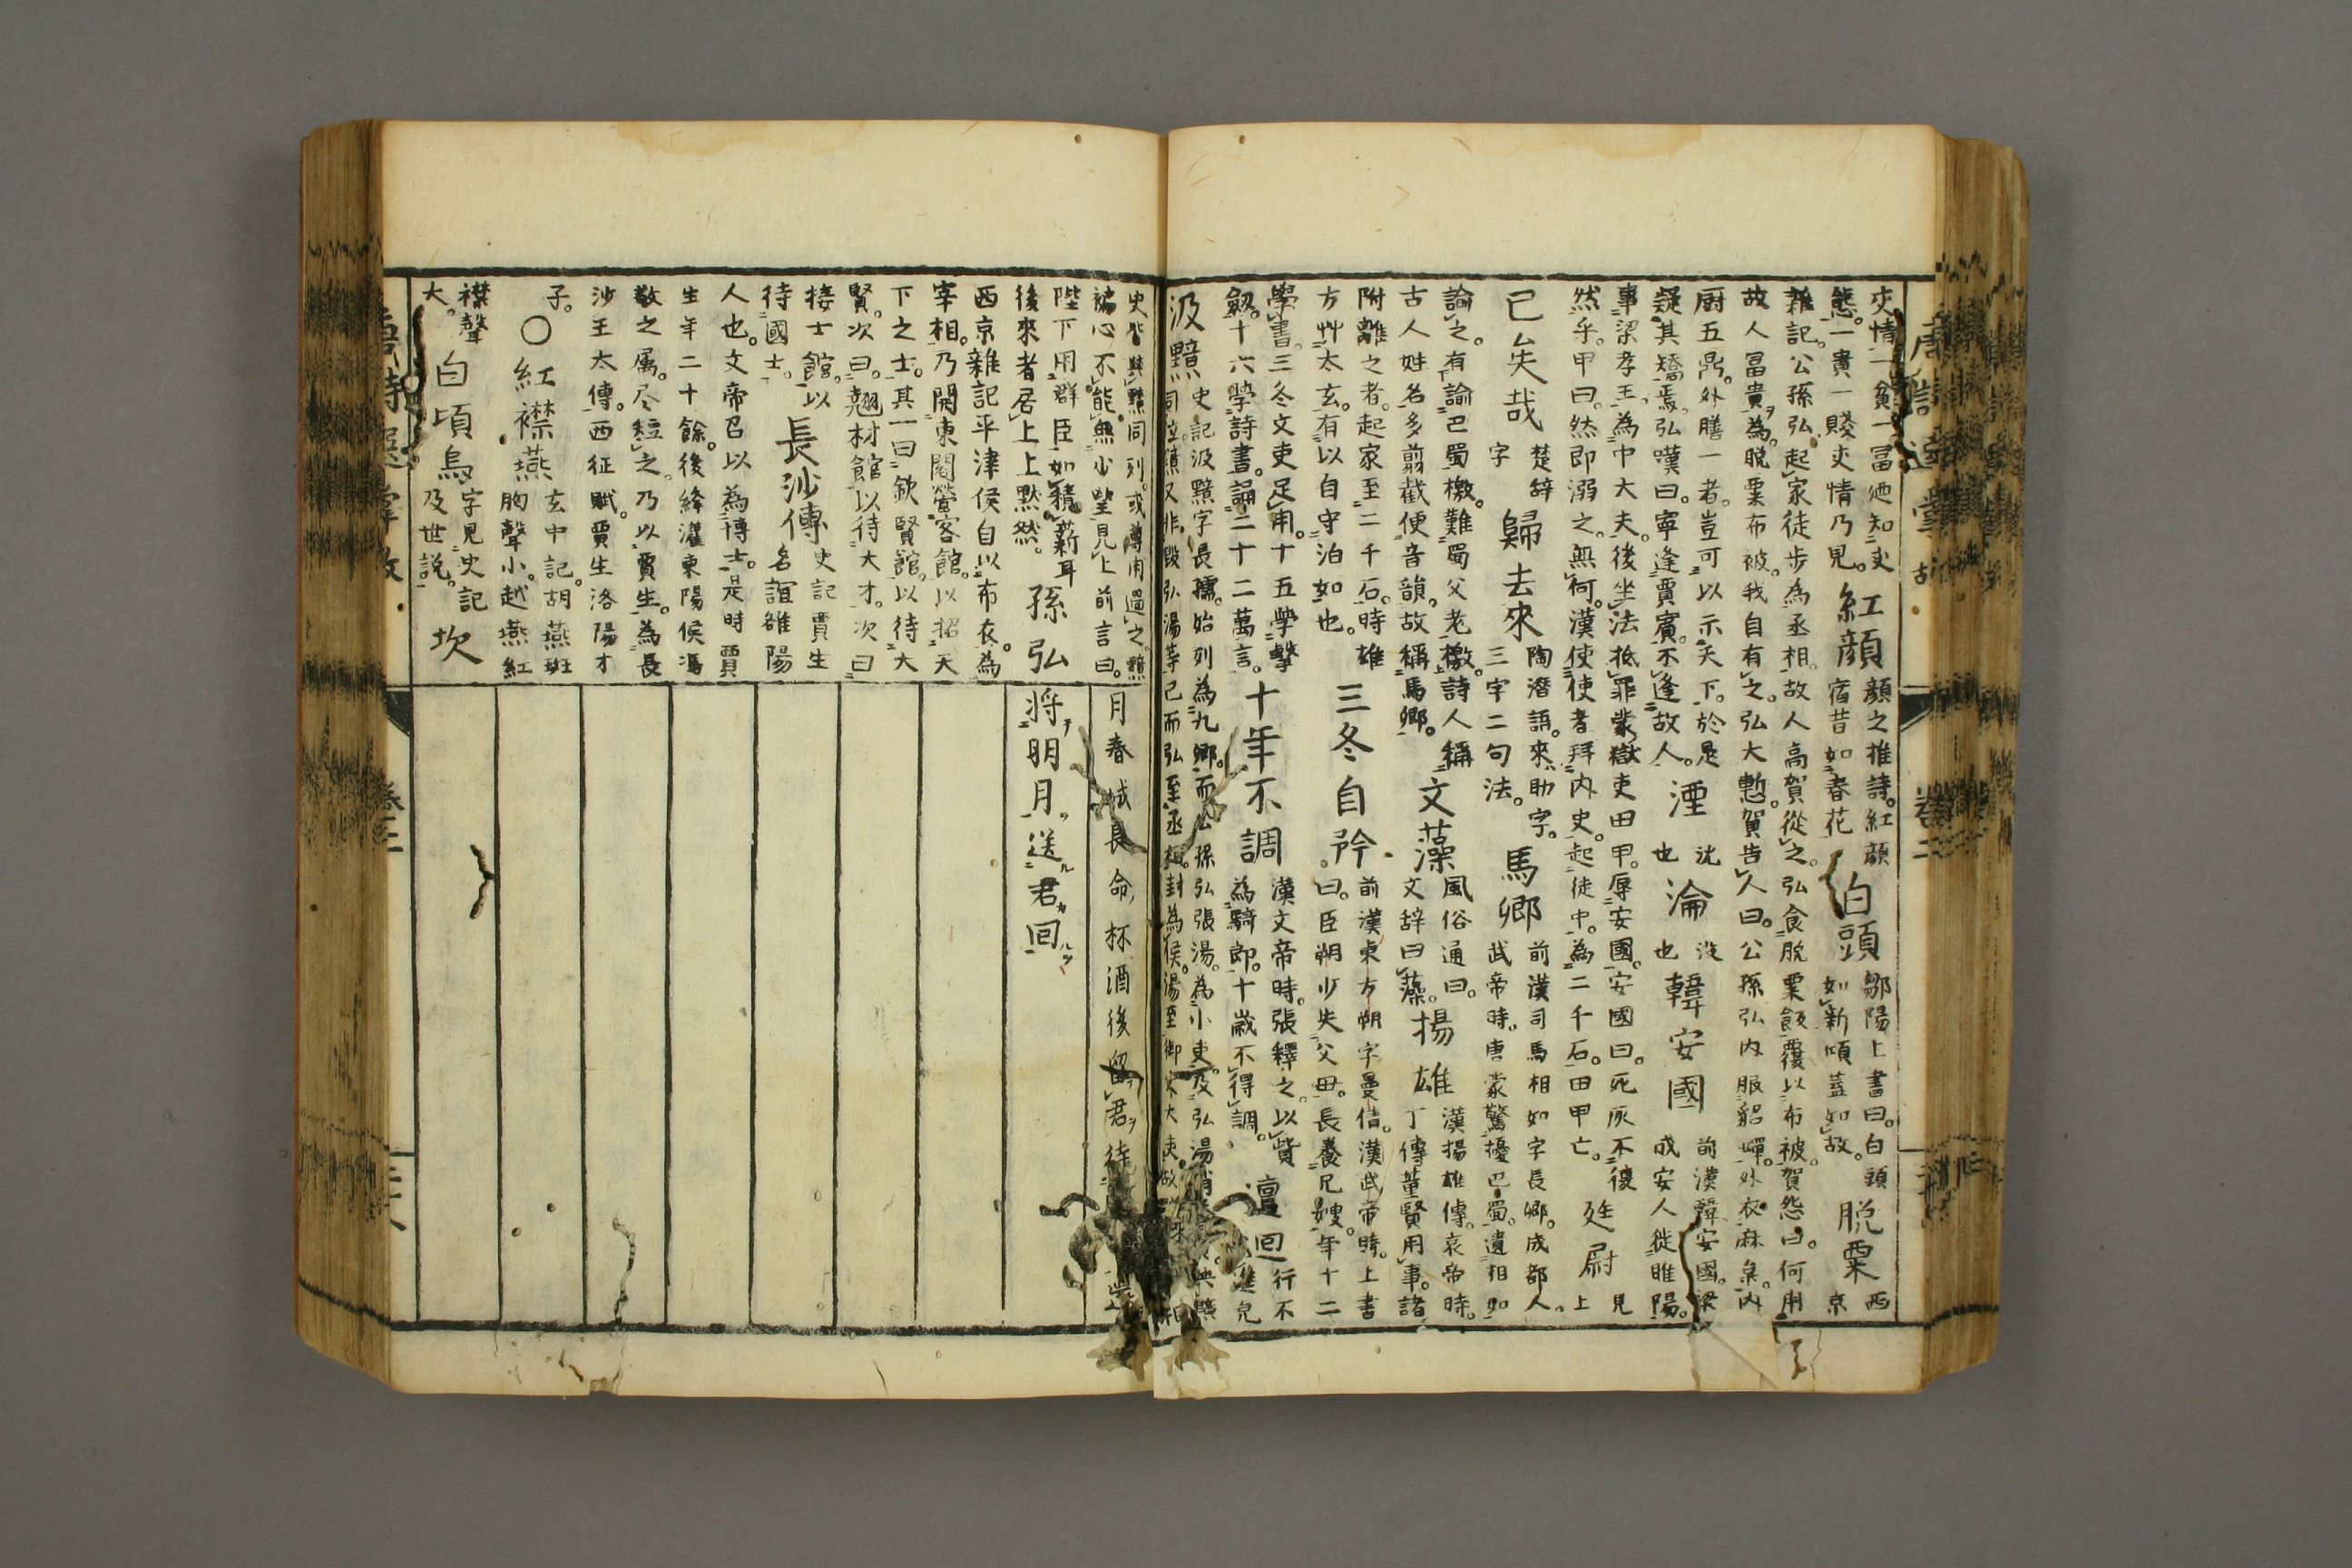 交情一貧一冨廼知交
態一貴一賤交情乃見紅顔顔之推詩紅顔
宿昔如春花白頭鄒陽上書曰白頭
如新傾蓋如故脱粟西京
雜記公孫弘起家徒步為丞相故人高賀從之弘食脱粟飯覆以布被賀怨曰何用
故人冨貴為脱粟布被我自有之弘大慙賀告人曰公孫弘内服貂蟬外衣麻枲内
厨五鼎外膳一者豈可以示天下於是
疑其矯焉弘嘆曰寧逢賈賓不逢故人湮沈也淪没也韓安國前漢韓安國梁
成安人徙睢陽
事梁孝王為中大夫後坐法抵罪蒙獄吏田甲辱安國安國曰死灰不復
然乎甲曰然即溺之無何漢使使者拜内史起徒中為二千石田甲亡廷尉見上
已矣哉楚辞字歸去來陶潜語來助字
三字二句法馬卿前漢司馬相如字長卿成都人
武帝時唐蒙驚擾巴蜀遺相如
諭之有諭巴蜀檄難蜀父老檄詩人稱
古人姓名多翦截便音韻故稱馬卿文藻風俗通曰
文辞曰藻揚雄漢揚雄傳哀帝時
丁傳董賢用事諸
附離之者起家至二千石時雄
方艸太玄有以自守泊如也三冬自矜前漢東方朔字曼倩漢武帝時上書
曰臣朔少失父毌長養兄嫂年十二
學書三冬文吏足用十五學擊
劔十六學詩書誦二十二萬言十年不調漢文帝時張釋之以貲
為騎郎十歳不得調邅回行不進皃
汲黯史記汲黯字長孺始列為九卿而公孫弘張湯為小吏及弘湯
同位黯又非毀弘湯等已而弘至丞相封為侯湯至御史大夫故
史皆與黯同列或尊用過之黯
褊心不能無少望見上前言曰
陛下用群臣如積薪耳
後來者居上上黙然孫弘
西京雜記平津侯自以布衣為
宰相乃開東閤營客館以招天
下之士其一曰欽賢館以待大
賢次曰翹材館以待大才次曰
接士館以
待國士長沙傳史記賈生
名誼雒陽
人也文帝召以為博士是時賈
生年二十餘後絳灌東陽侯馮
敬之属尽短之乃以賈生為長
沙王太傳西征賦賈生洛陽才
子○紅襟燕玄中記胡燕班
胸聲小越燕紅
襟聲
大白項烏字見史記
及世説坎
月春城長命杯酒後留君待
將明月送君回